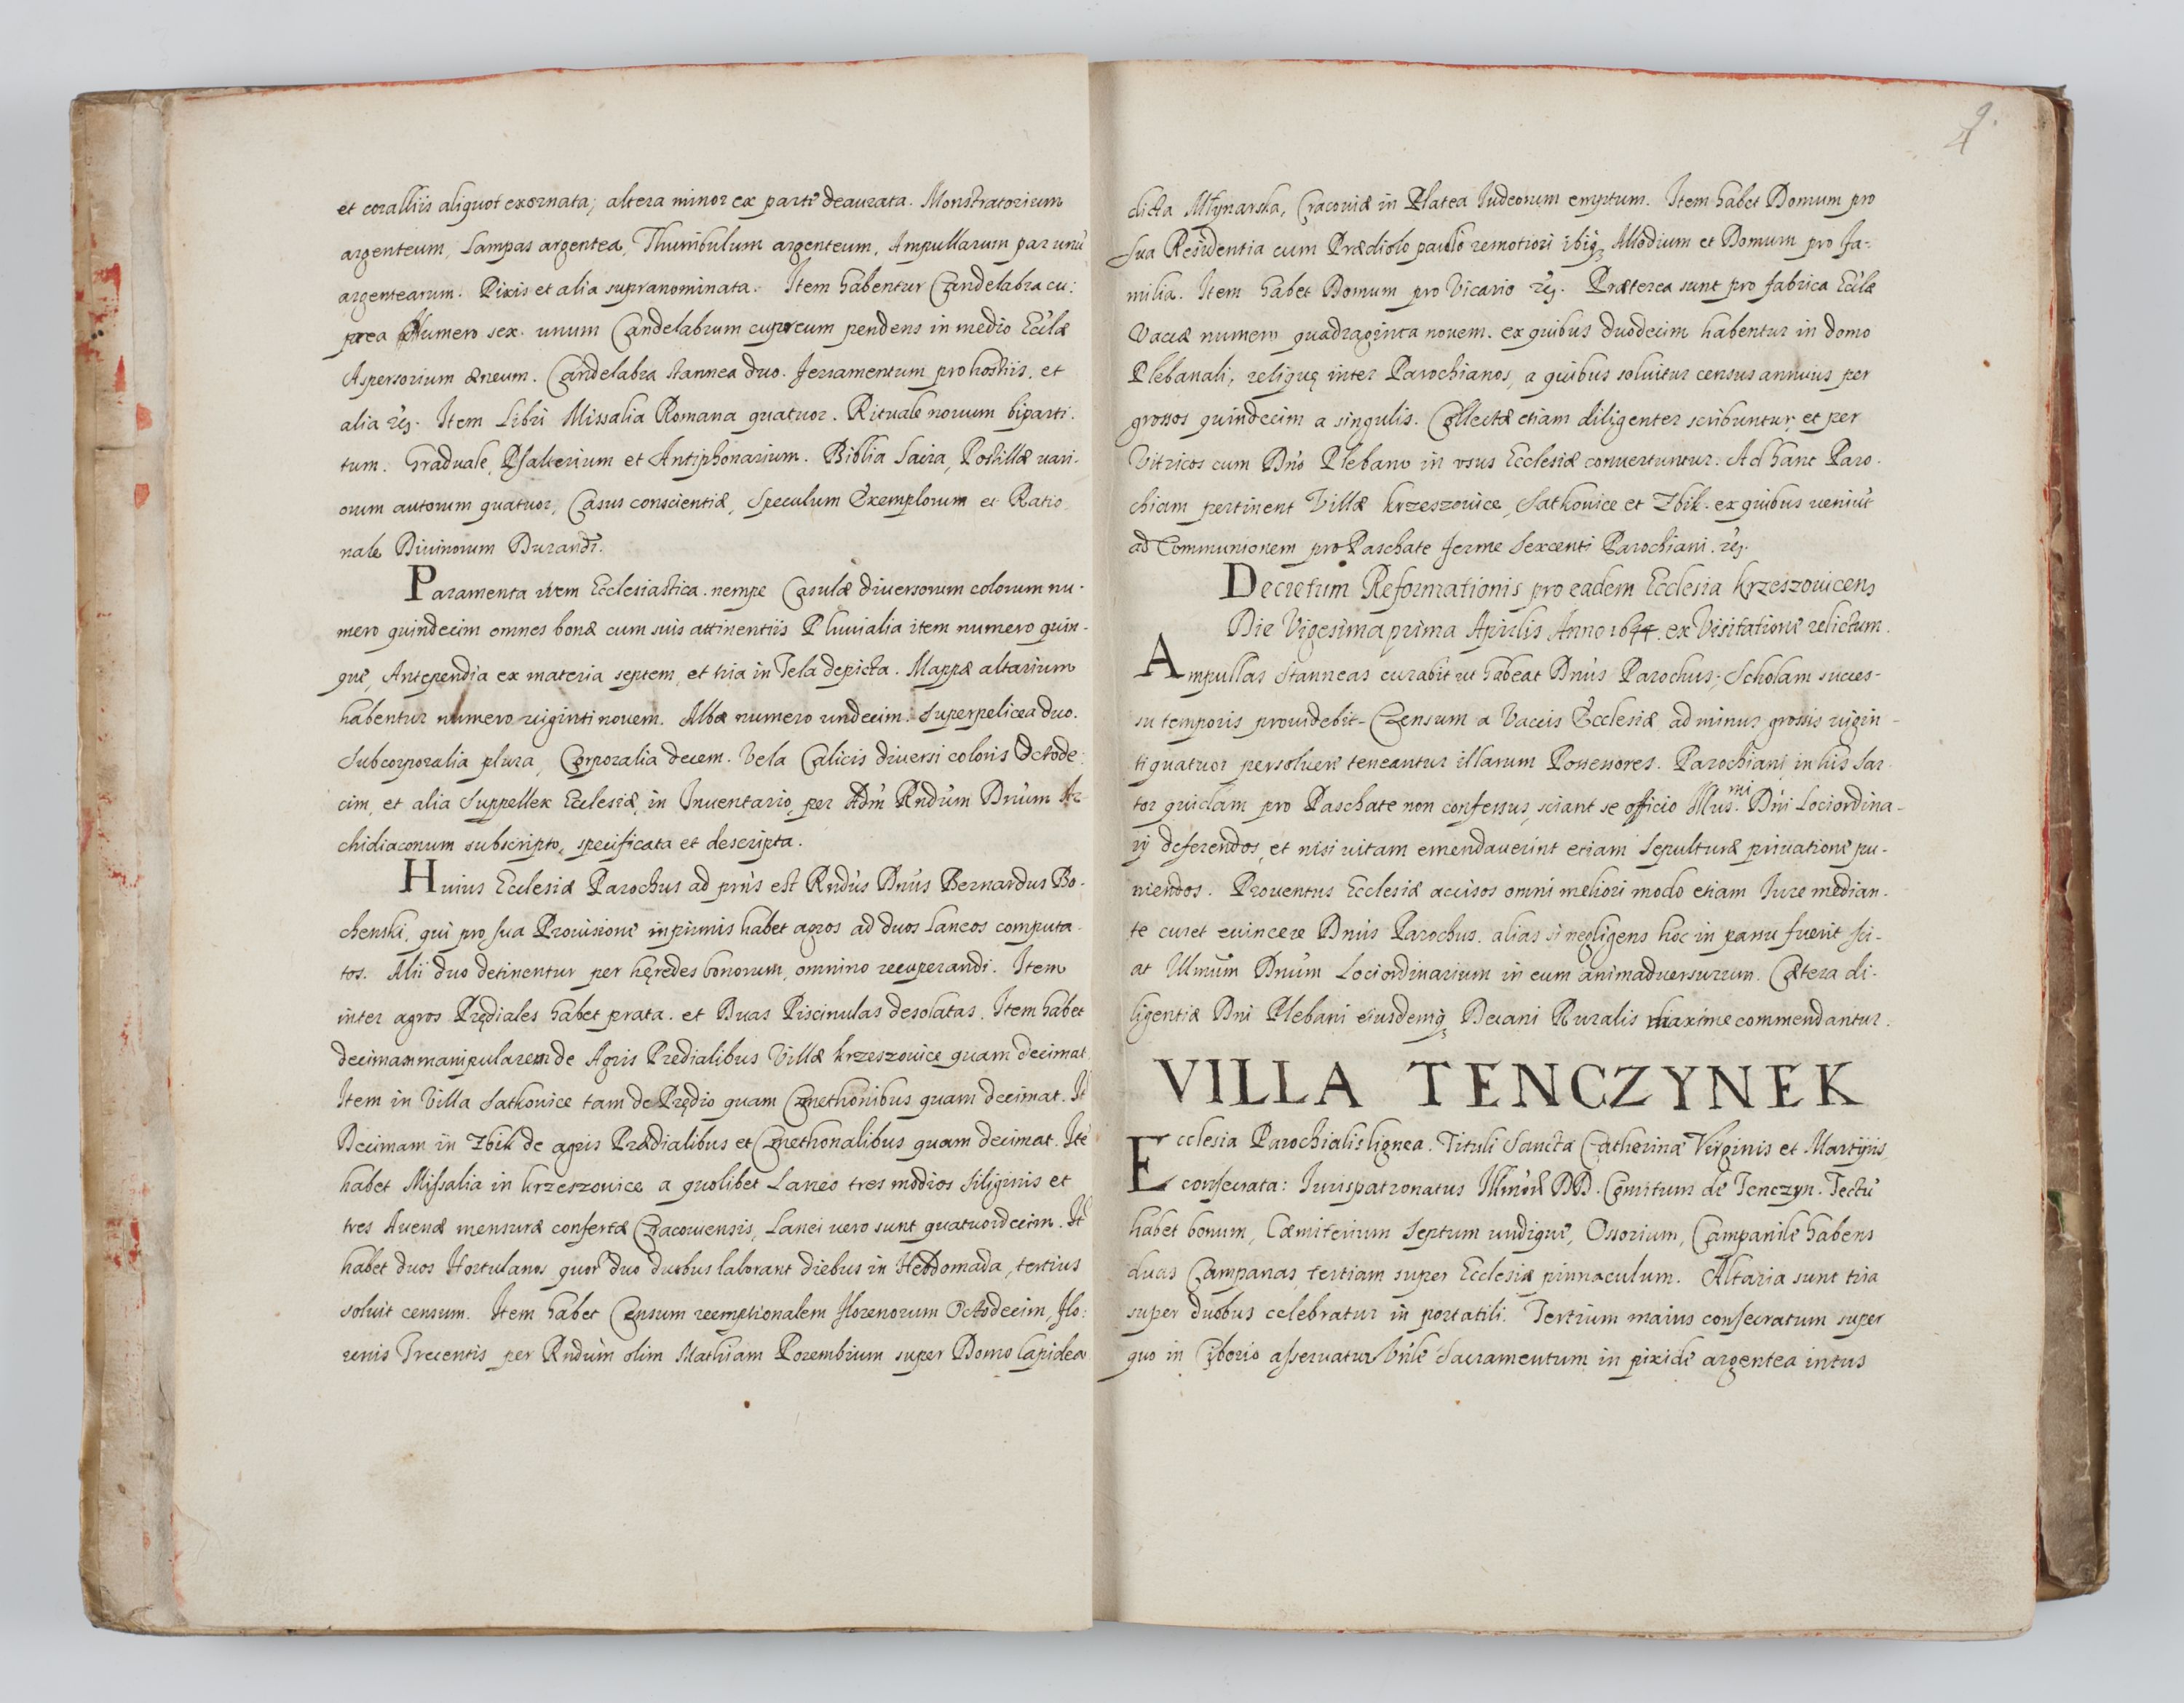 et corallijs aliquot exornata; altera minor ex parte deaurata. Monstratorium
argenteum, Lampas argentea, Thuribulum argenteum, Ampullarum par unũ
argentearum. Pixis et alia supranominata. Item habentur Candelabra cu:
prea Numero sex. unum Candelabrum cupreum pendens in medio Ecclæ
Aspersorium æneum. Candelabra stannea duo. Ferramentum pro hostiis, et
alia etc. Item Libri Missalia Romana quatuor. Rituale novum biparti.
tum. Graduale, Psalterium et Antiphonarium. Biblia Sacra, Postillæ vari.
orum autorum quatuor, Casus conscientiæ, Speculum Exemplorum et Ratio
nale Divinorum Durandi.
Paramenta item Ecclesiastica. nempe Casulæ diversorum colorum nu.
mero quindecim omnes bonæ cum suis attinentiis Pluvialia item numero quin-
que, Antependia ex materia septem, et tria in Tela depicta. Mappæ altarium
habentur numero viginti novem. Albæ numero undecim. Superpelicea duo.
Subcorporalia plura, Corporalia decem. Vela Calicis diversi coloris Octode:
cim, et alia Suppellex Ecclesiæ, in Inventario, per Adm̃ Rndũm Dnũm Ar-
chidiaconum subscripto, specificata et descripta.
Huius Ecclesiæ Parochus ad prñs est Rndũs Dnũs Bernardus Bo-
chenski, qui pro sua Provisione inprimis habet agros ad duos Laneos computa.
tos. Alii duo detinentur per hęredes bonorum, omnino recuperandi. Item
inter agros Prędiales habet prata. et Duas Piscinulas desolatas. Item habet
decimam manipularem de Agris Predialibus Villæ krzeszovice quam decimat.
Item in Villa Satkovice tam de Prędio quam Cmethonibus quam decimat. It̃
Decimam in Zbik de agris Prædialibus et Cmethonalibus quam decimat. Itẽ
habet Missalia in krzeszovice a quolibet Laneo tres modios siliginis et
tres Avenæ mensuræ confertæ Cracoviensis, Lanei vero sunt quatuordecim. It̃
habet duos Hortulanos quor̃ duo duobus laborant diebus in Hebdomada, tertius
solvit censum. Item habet Censum reemptionalem florenorum Octodecim, flo:
renis Trecentis per Rndũm olim Mathiam Porembium super Domo lapidea
9.
4
dicta Młynarska, Cracoviæ in Platea Iudeorum emptum. Item habet Domum pro
sua Residentia cum Prædiolo paulo remotiori ibiq3 Allodium et Domum pro fa:
milia. Item habet Domum pro Vicario etc. Præterea sunt pro fabrica Ecclæ
Vaccæ numero quadraginta novem. ex quibus duodecim habentur in domo
Plebanali, reliquę inter Parochianos, a quibus solvitur census annuus per
grossos quindecim a singulis. Collectæ etiam diligenter scribuntur, et per
Vitricos cum Dño Plebano in usus Ecclesiæ convertuntur. Ad hanc Paro.
chiam pertinent Villæ krzeszovice, Satkovice et Zbik. ex quibus veniũt
ad Communionem pro Paschate ferme Sexcenti Parochiani. etc.
Decretum Reformationis pro eadem Ecclesia krzeszovicens
Die Vigesima prima Aprilis Anno 1644. ex Visitatione relictum.
Ampullas Stanneas curabit ut habeat Dnũs Parochus; Scholam succes-
su temporis providebit. Censum a Vaccis Ecclesiæ ad minus grossis vigin-
tiquatuor persolvere teneantur illarum Possessores. Parochiani, in his Sar
tor quidam pro Paschate non confessus, sciant se officio Illus.mi Dñi Lociordina-
rij deferendos, et nisi vitam emendaverint etiam sepulturæ privatione pu-
niendos. Proventus Ecclesiæ accisos omni meliori modo etiam Iure median-
te curet evincere Dnũs Parochus. alias si negligens hoc in passu fuerit sci-
at Illmũm Dnũm Lociordinarium in eum animadversurum. Cætera di-
ligentiæ Dñi Plebani eiusdemq3 Decani Ruralis maxime commendantur.
VILLA TENCZYNEK
Ecclesia Parochialis lignea. Tituli Sanctæ Catherinæ Virginis et Martyris,
consecrata: Iurispatronatus DD. Comitum de Tenczyn. Tectũ
habet bonum, Cæmiterium septum undique, Ossorium, Campanile habens
duas Campanas, tertiam super Ecclesiæ pinnaculum. Altaria sunt tria
super duobus celebratur in portatili. Tertium maius consecratum super
quo in Ciborio asservatur Vnĩle Sacramentum in pixide argentea intus